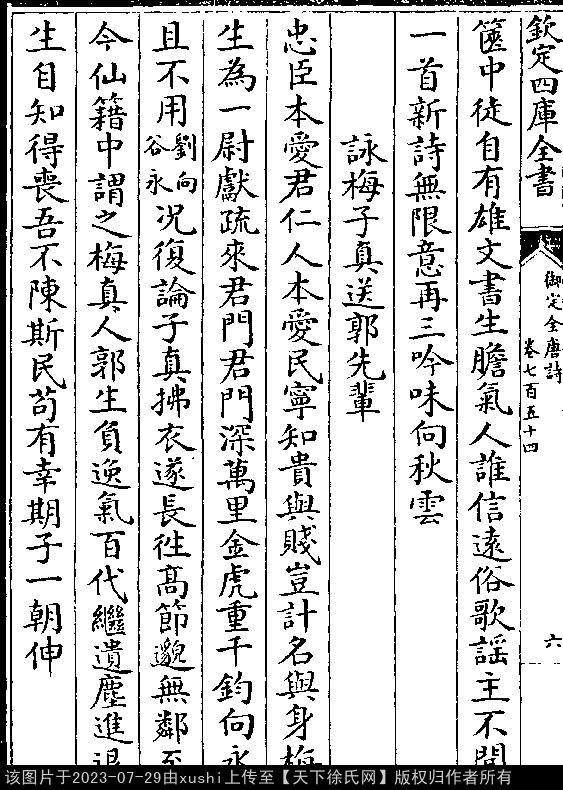 欽定四庫全書
御定全唐詩
卷七百五十四
六
篋中徒自有雄文書生膽氣人誰信遠俗歌謡主不聞
一首新詩無限意再三吟味向秋雲
詠梅子真送郭先輩
忠臣本愛君仁人本愛民寧知貴與賤豈計名與身梅
生為一尉獻疏來君門君門深萬里金虎重千鈞向永
且不用劉向谷永况復論子真拂衣遂長徃髙節邈無鄰至
今仙籍中謂之梅真人郭生負逸氣百代繼遺塵進退
生自知得喪吾不陳斯民苟有幸期子一朝伸
该图片于2023-07-29由xushi上传至【天下徐氏网】版权归作者所有